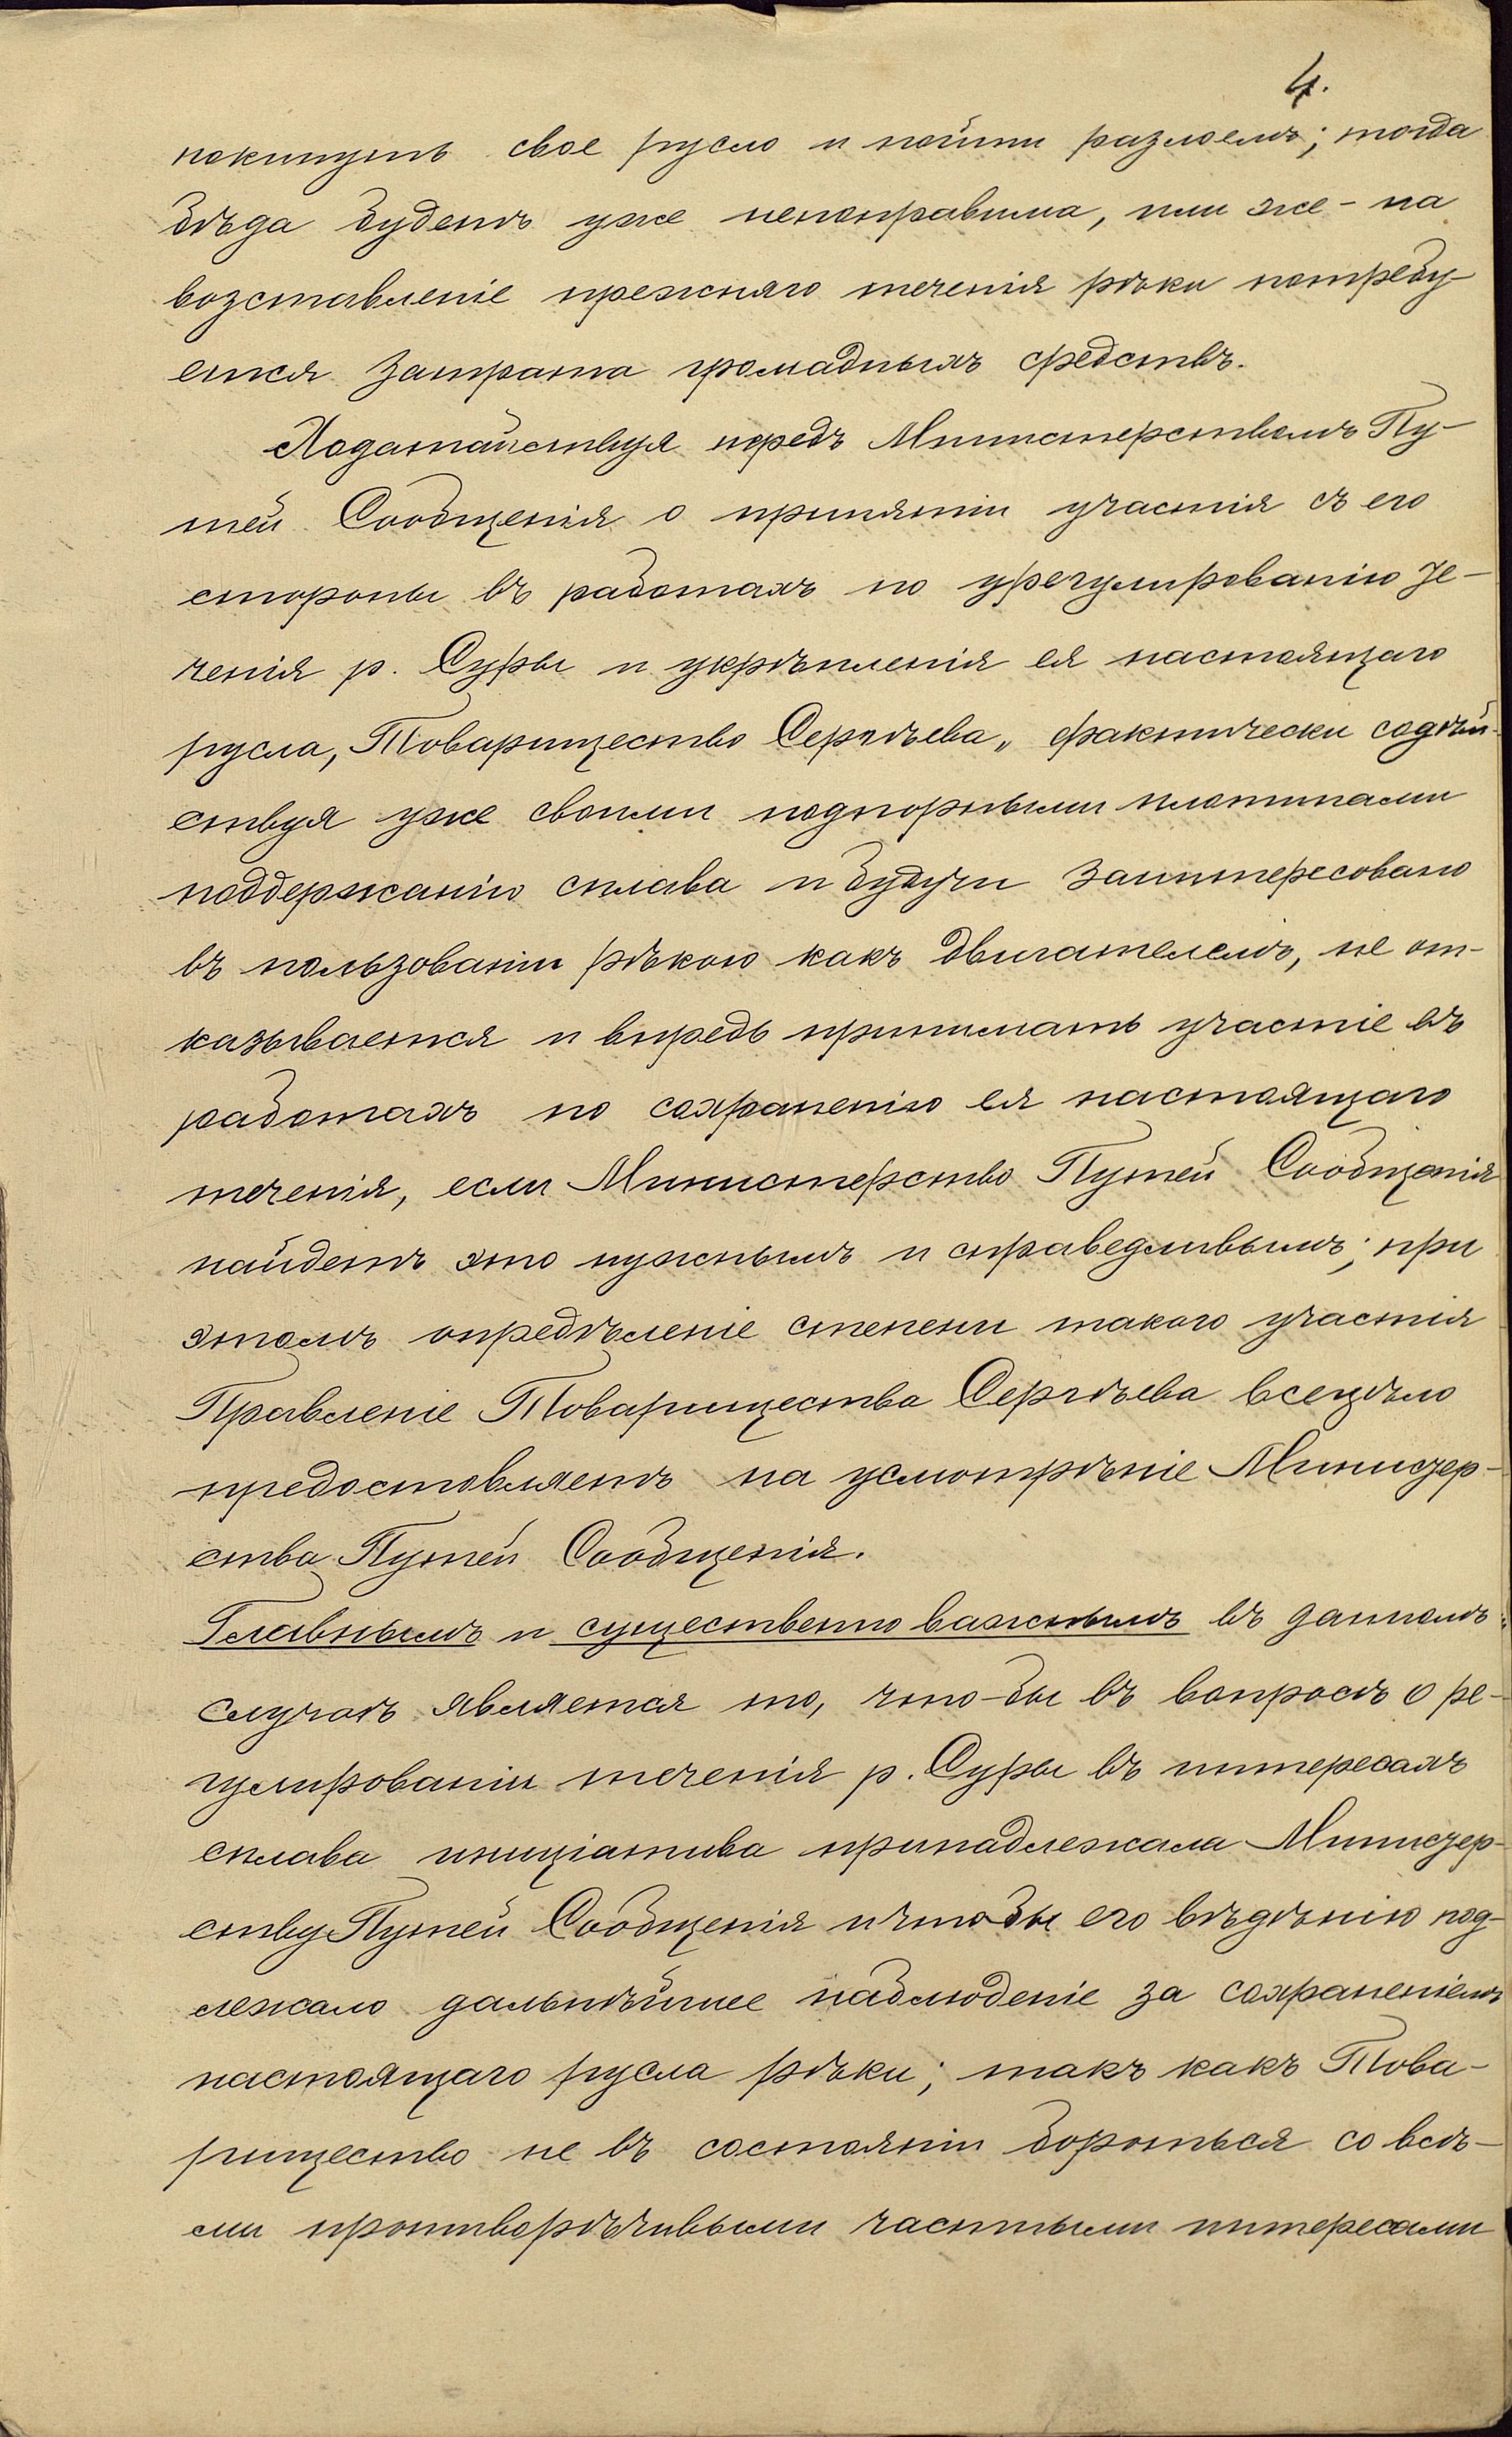 4.
покинуть свое русло и пойти разломъ; тогда
бѣда будетъ уже непоправима, или же - на
возставленіе прежняго теченія рѣки потребу-
ется затрата громадныхъ средствъ.
Ходатайствуя передъ Министерствомъ Пу-
тей Сообщенія о принятіи участія съ его
стороны въ работахъ по урегулированію те-
ченія р. Суры и укрѣпленія ея настоящаго
русла, Товарищество Сергѣева „ фактически содѣй-
ствуя уже своими подпорными плотинами
поддержанію сплава и будучи заинтересовано
въ пользованіи рѣкою какъ двигателемъ, не от-
казывается и впредь принимать участіе въ
работахъ по сохраненію ея настоящаго
теченія, если Министерство Путей Сообщенія
найдетъ это нужнымъ и справедливымъ; при
этомъ опредѣленіе степени такого участія
Правленіе Товарищества Сергѣева всецѣло
предоставляетъ на усмотрѣніе Министер-
ства Путей Сообщенія.
Главнымъ и существенно важнымъ въ данномъ
случаѣ является то, что-бы въ вопросѣ о ре-
гулированіи теченія р. Суры въ интересахъ
сплава иниціатива принадлежала Министер-
ству Путей Сообщенія и что-бы его вѣдѣнію под-
лежало дальнѣйшее наблюденіе за сохраненіемъ
настоящаго русла рѣки; такъ какъ Това-
рищество не въ состояніи бороться со всѣ-
ми противорѣчивыми частными интересами